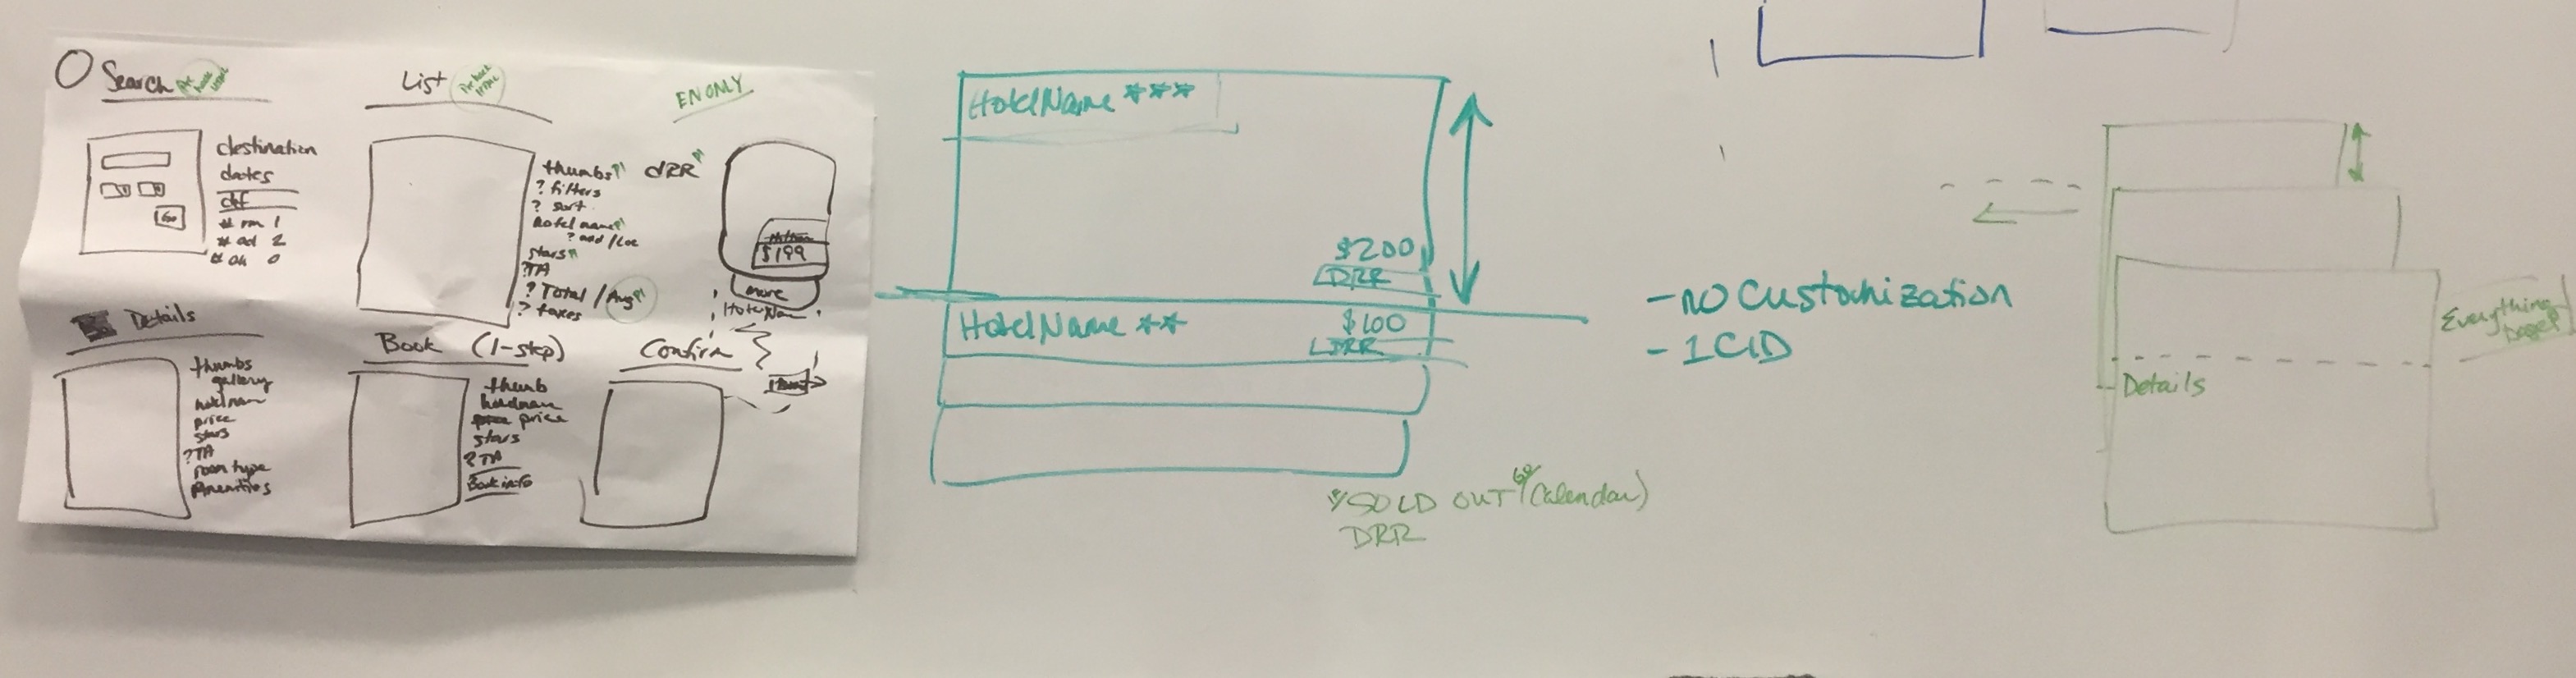 Search
List
EN ONLY
destination
dates
# rm 1
# ad 2
# ch 0
Go
thumbs P1
? filters
? sort
hotel name P1
stars P1
? TA
? Total / Avg P1
? taxes
dRR P1
$199
more
Details
thumbs
gallery
hotel nam
price
stars
? TA
room type
Amenities
Book (1-step)
thumb
price
stars
? TA
Book info
Confirm
Hotel Name ***
$200
DRR
Hotel Name **
$100
DRR
SOLD OUT (Calendar)
DRR
- NO Customization
- 1 CID
Everything
Details